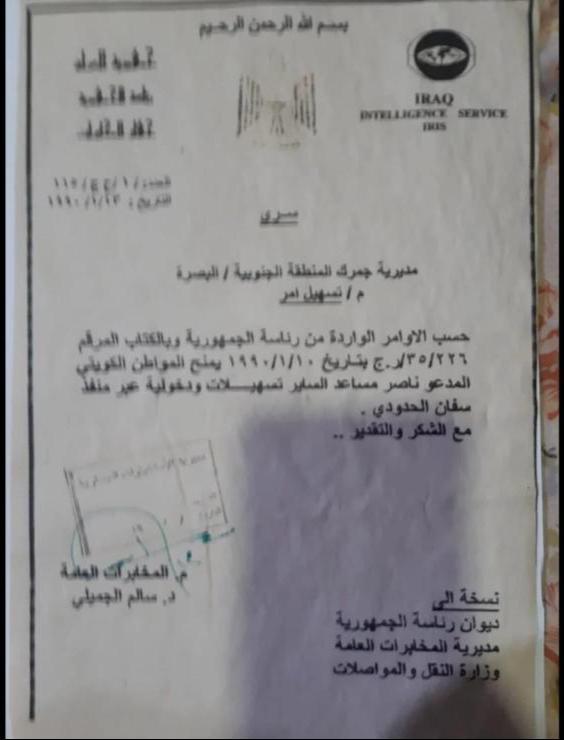 بسم الله الرحمن الرحيم
IRAQ
INTELLIGENCE SERVICE
IRIS
التاريخ : ١٩٩٠/١/١٣
سري
مديرية جمرك المنطقة الجنوبية / البصرة
م / تسهيل امر
حسب الاوامر الواردة من رئاسة الجمهورية وبالكتاب المرقم
٣٥/٢٢٦/ر.ج بتاريخ ١٩٩٠/١/١٠ يمنح المواطن الكويتي
المدعو ناصر مساعد الساير تسهيـــلات ودخولية عبر منفذ
سفان الحدودي .
مع الشكر والتقدير ..
م. المخابرات العامة
د. سالم الجميلي
نسخة الى
ديوان رئاسة الجمهورية
مديرية المخابرات العامة
وزارة النقل والمواصلات